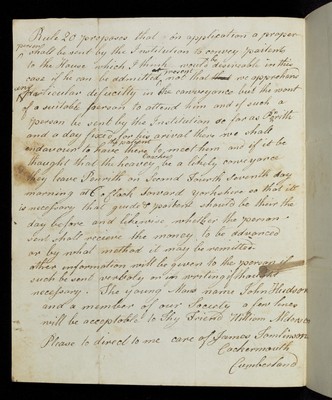 Rule 20 proposes that in application a proper
person
shall be sent by the Institution to convey patients
to the House which I think would be desireable in this
at present
case if he can be admitted, not that we apprehend
any
particular deficulty in the conveyance but the want
of a suitable person to attend him and if such a
person be sent by the Institution so far as Penrith
and a day fixed for his arival there we shall
the patient
endeavour to have there to meet him and if it be
Coaches
thought that the heavey be a likely conveyance
they leave Penrith on Second Fourth Seventh day
morning at 6 o Clock toward Yorkshire so that it
is necessary that guide & patient should be their the
day before and likewise whether the person
sent shall receive the money to be advanced
or by what method it may be remitted
other information will be given to the person if
such is sent verbaly or in writing if
necessary. The young Mans name John Hudson
and a member of our Society a few lines
will be acceptable to Thy Friend William Alderson
Please to direct to me care of James Tomlinson
Cockermouth
Cumberland